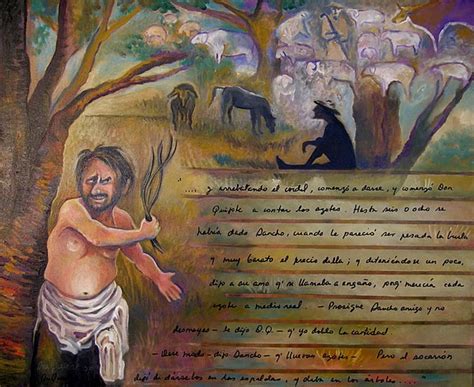 ".... y arrebatando el cordel, comenzó a darse, y comenzó Don
Quijote a contar los azotes. Hasta seis o ocho se
habría dado Sancho, cuando le pareció ser pesada la burla
y muy barato el precio della; y deteniéndose un poco,
dijo a su amo q' se llamaba a engaño, porq' merecía cada
azote a medio real. - Prosigue Sancho amigo y no
desmayes - le dijo D.Q. - q' yo doblo la cantidad.
- Dese modo - dijo Sancho - q' lluevan azotes - Pero el socarrón
dejó de dárselos en las espaldas, y daba en los árboles ...."